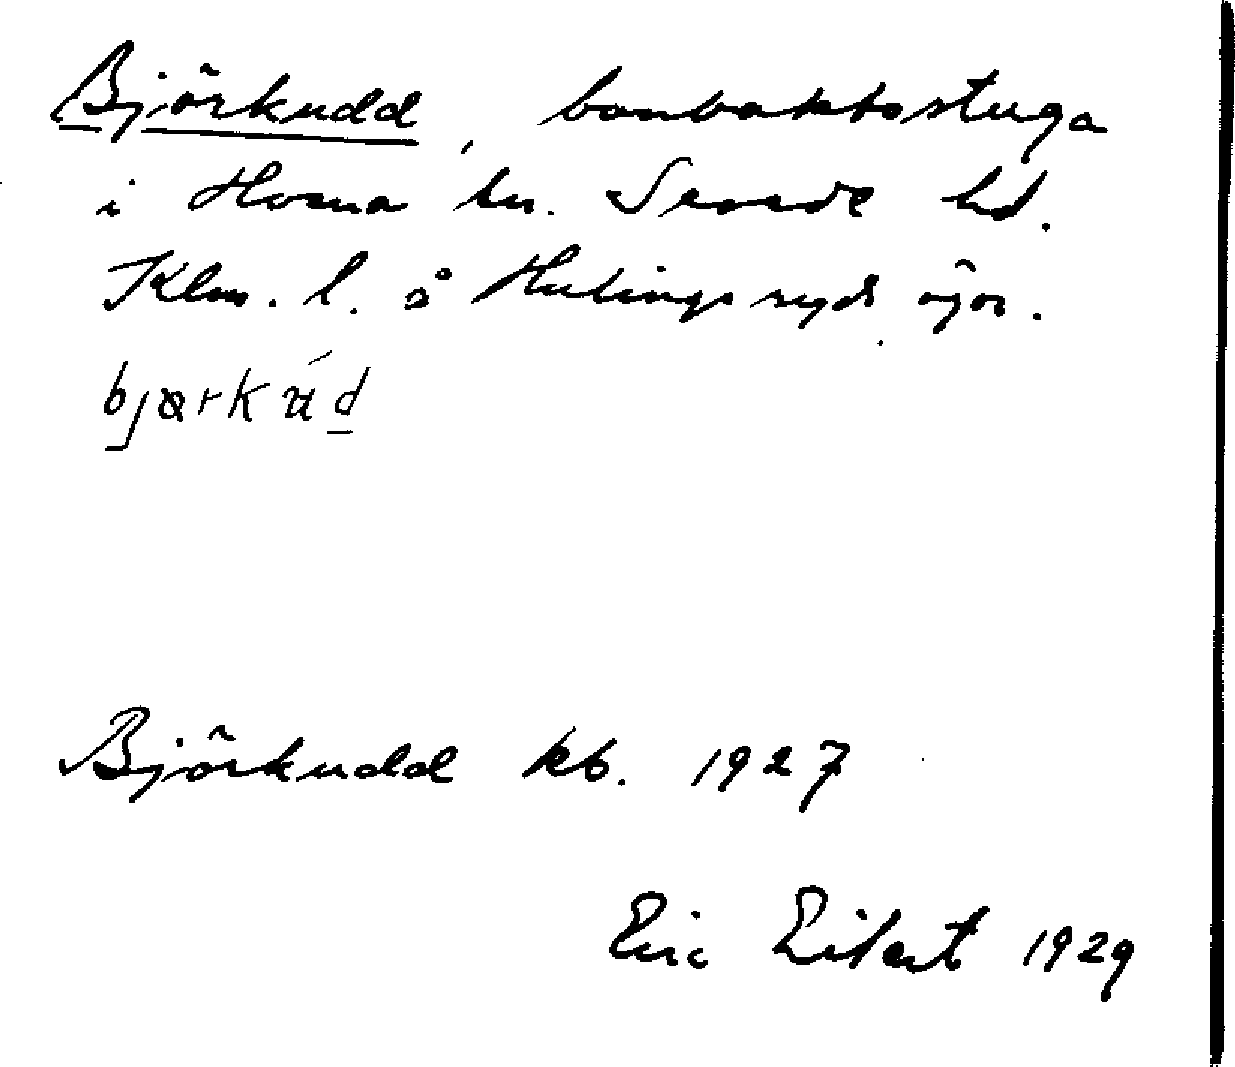 Björkudd, banvaktsstuga
i Horna sn. Sevede hd.
Klm. l. å Hulingsryds ägor.
bjørkúd
Björkudd kb. 1927
Eric 1929